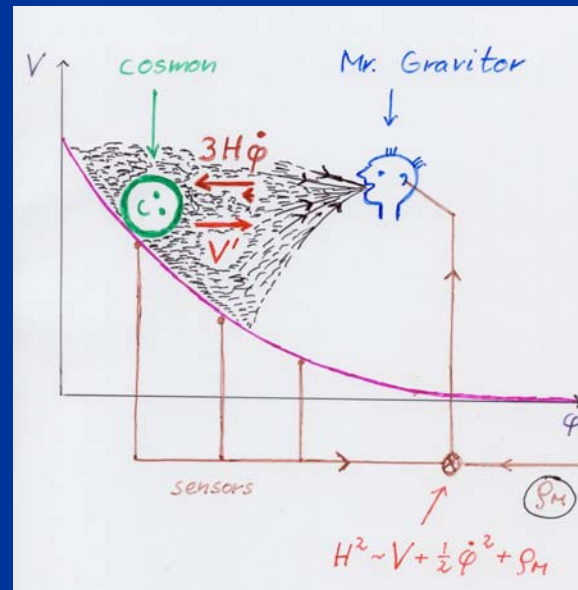 V
cosmon
Mr. Gravitor
3Hφ̇
V'
φ
sensors
ρ_M
H² ~ V + ½ φ̇² + ρ_M